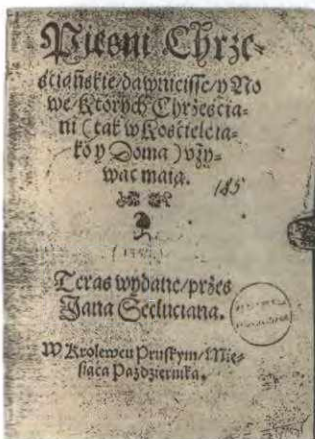 Pieśni Chrze-
ściańskie/dawnieisse/y No
we/Ktorych Chrześcia-
ni (tak w Kościele ia-
ko y Doma) vży-
wać maią.
185
Teras wydane/przes
Jana Secluciana.
W Krolewcu Pruskym/Mie-
siąca Października.